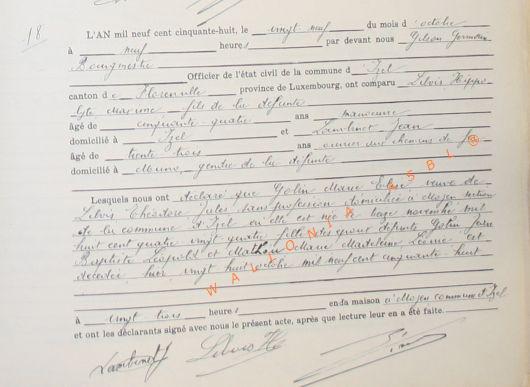 18
L'AN mil neuf cent cinquante-huit, le vingt neuf du mois d'octobre
à neuf heures par devant nous Gilson Germain
Bourgmestre
Officier de l'état civil de la commune d'Izel
canton de Florenville province de Luxembourg, ont comparu Lebvis Hippo-
lyte fils de la défunte
âgé de cinquante quatre ans manoeuvre
domicilié à Izel et Lambinet Jean
âgé de trente trois ans ouvrier aux chemins de fer
domicilié à Moyen, gendre de la défunte
Lesquels nous ont déclaré que Golin Marie Elise, veuve de
Théodore Jules sans profession domiciliée à Moyen section
de la commune d'Izel où elle est née le treize novembre mil
huit cent quatre vingt quatre fille des époux défunts Golin Jean
Baptiste Léopold et Mathon Marie Madeleine, Léonie est
décédée hier vingt huit octobre mil neuf cent cinquante huit
à vingt trois heures en sa maison à Moyen commune d'Izel
et ont les déclarants signé avec nous le présent acte, après que lecture leur en a été faite.
Lambinet J
WALLONIA ASBL @